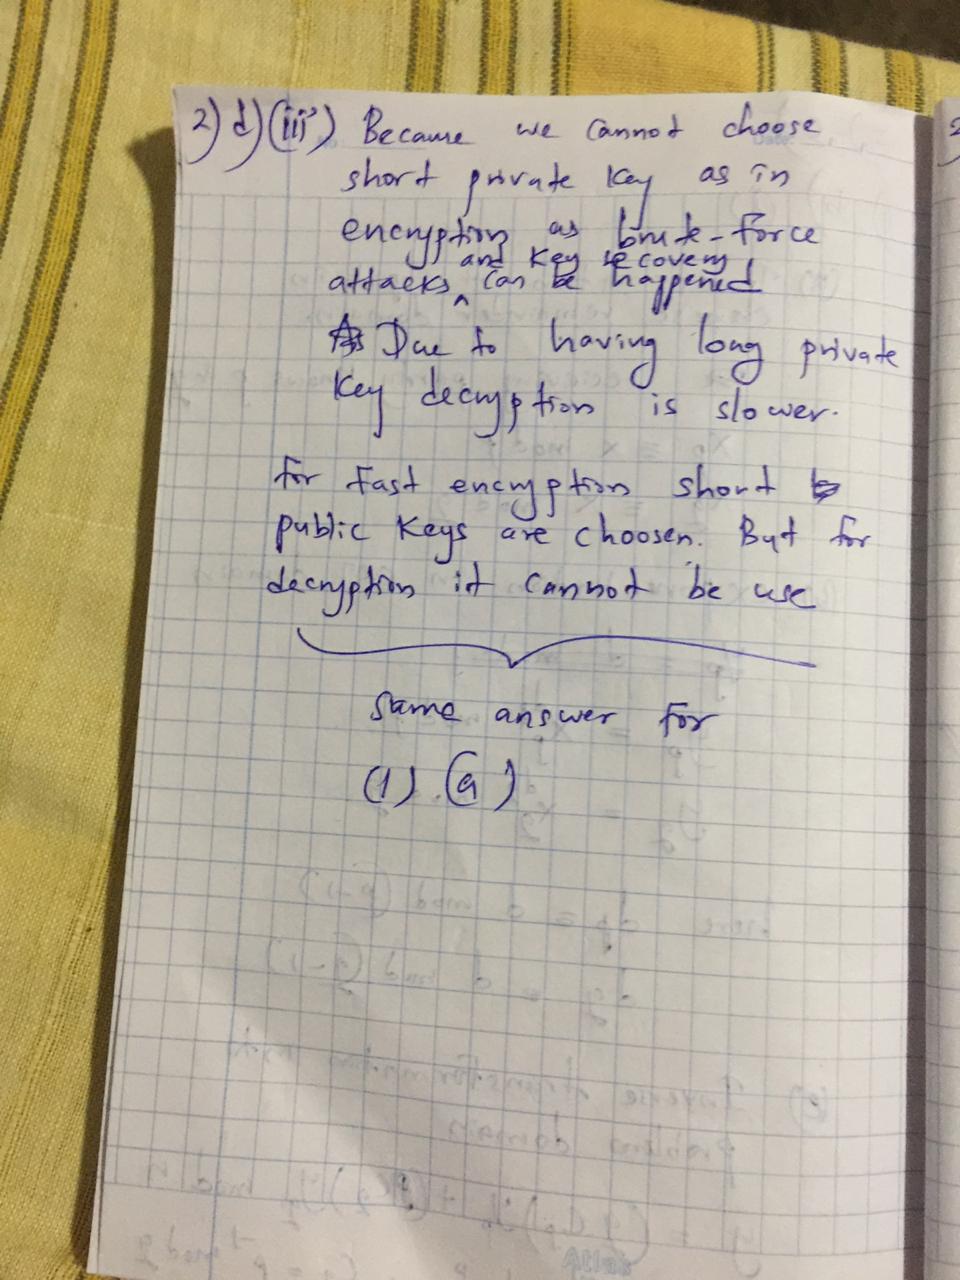 2) d) (iii) Because we cannot choose
short private key as in
encryption as brute-force
and key recovery
attacks ^ can be happened
As Due to having long private
key decryption is slower.
for fast encryption short
public keys are choosen. But for
decryption it cannot be use
same answer for
(1) (a)